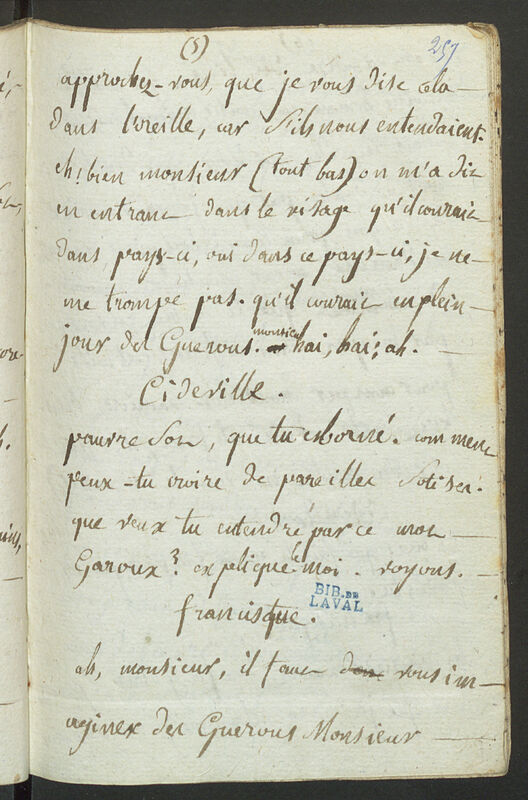 (5)
257
approchez-vous, que je vous dise cela
dans l'oreille, car s'ils nous entendaient.
eh! bien monsieur (tout bas) on m'a dit
en entrant dans le visage qu'il courait
dans, pays-ci, oui dans ce pays-ci, je ne
me trompe pas. qu'il courait en plein
jour des Guerous. monsieur hai, hai; ah.
Cideville.
pauvre Sot, que tu es borné. comment
peux-tu croire de pareilles sotises.
que veux tu entendre par ce mot
Garoux? explique moi. voyons.
BIB. DE
LAVAL
francisque.
ah, monsieur, il faut donc vous im-
aginer des Guerous Monsieur